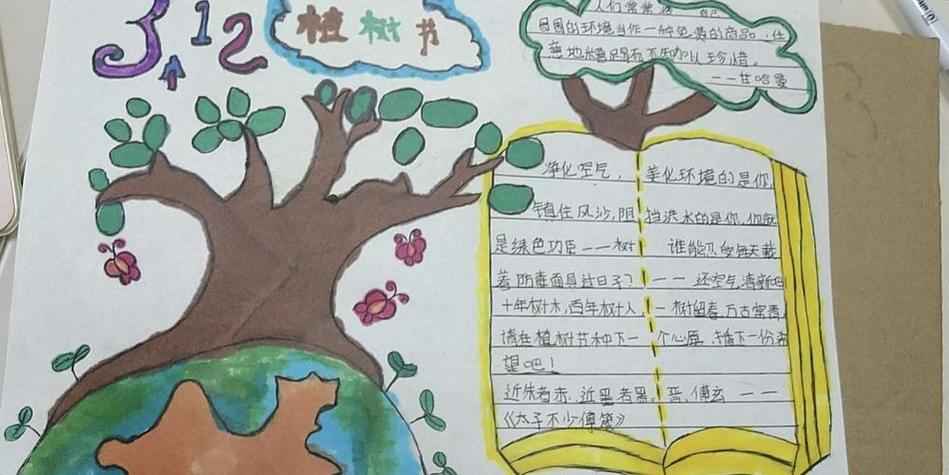 3.12
植树节
人们常常
周围的环境当作一种免费的商品,任
意地糟蹋而不知加以珍惜。
——甘哈曼
净化空气,美化环境的是你,
镇住风沙,阻挡洪水的是你,你就
是绿色功臣——树 谁能忍受每天戴
着防毒面具过日子?——还空气清新
十年树木,百年树人,一树留春万古常青,
请在植树节种下一个心愿,播下一份希
望吧!
近朱者赤,近墨者黑,晋,傅玄——
《太子不少傅箴》